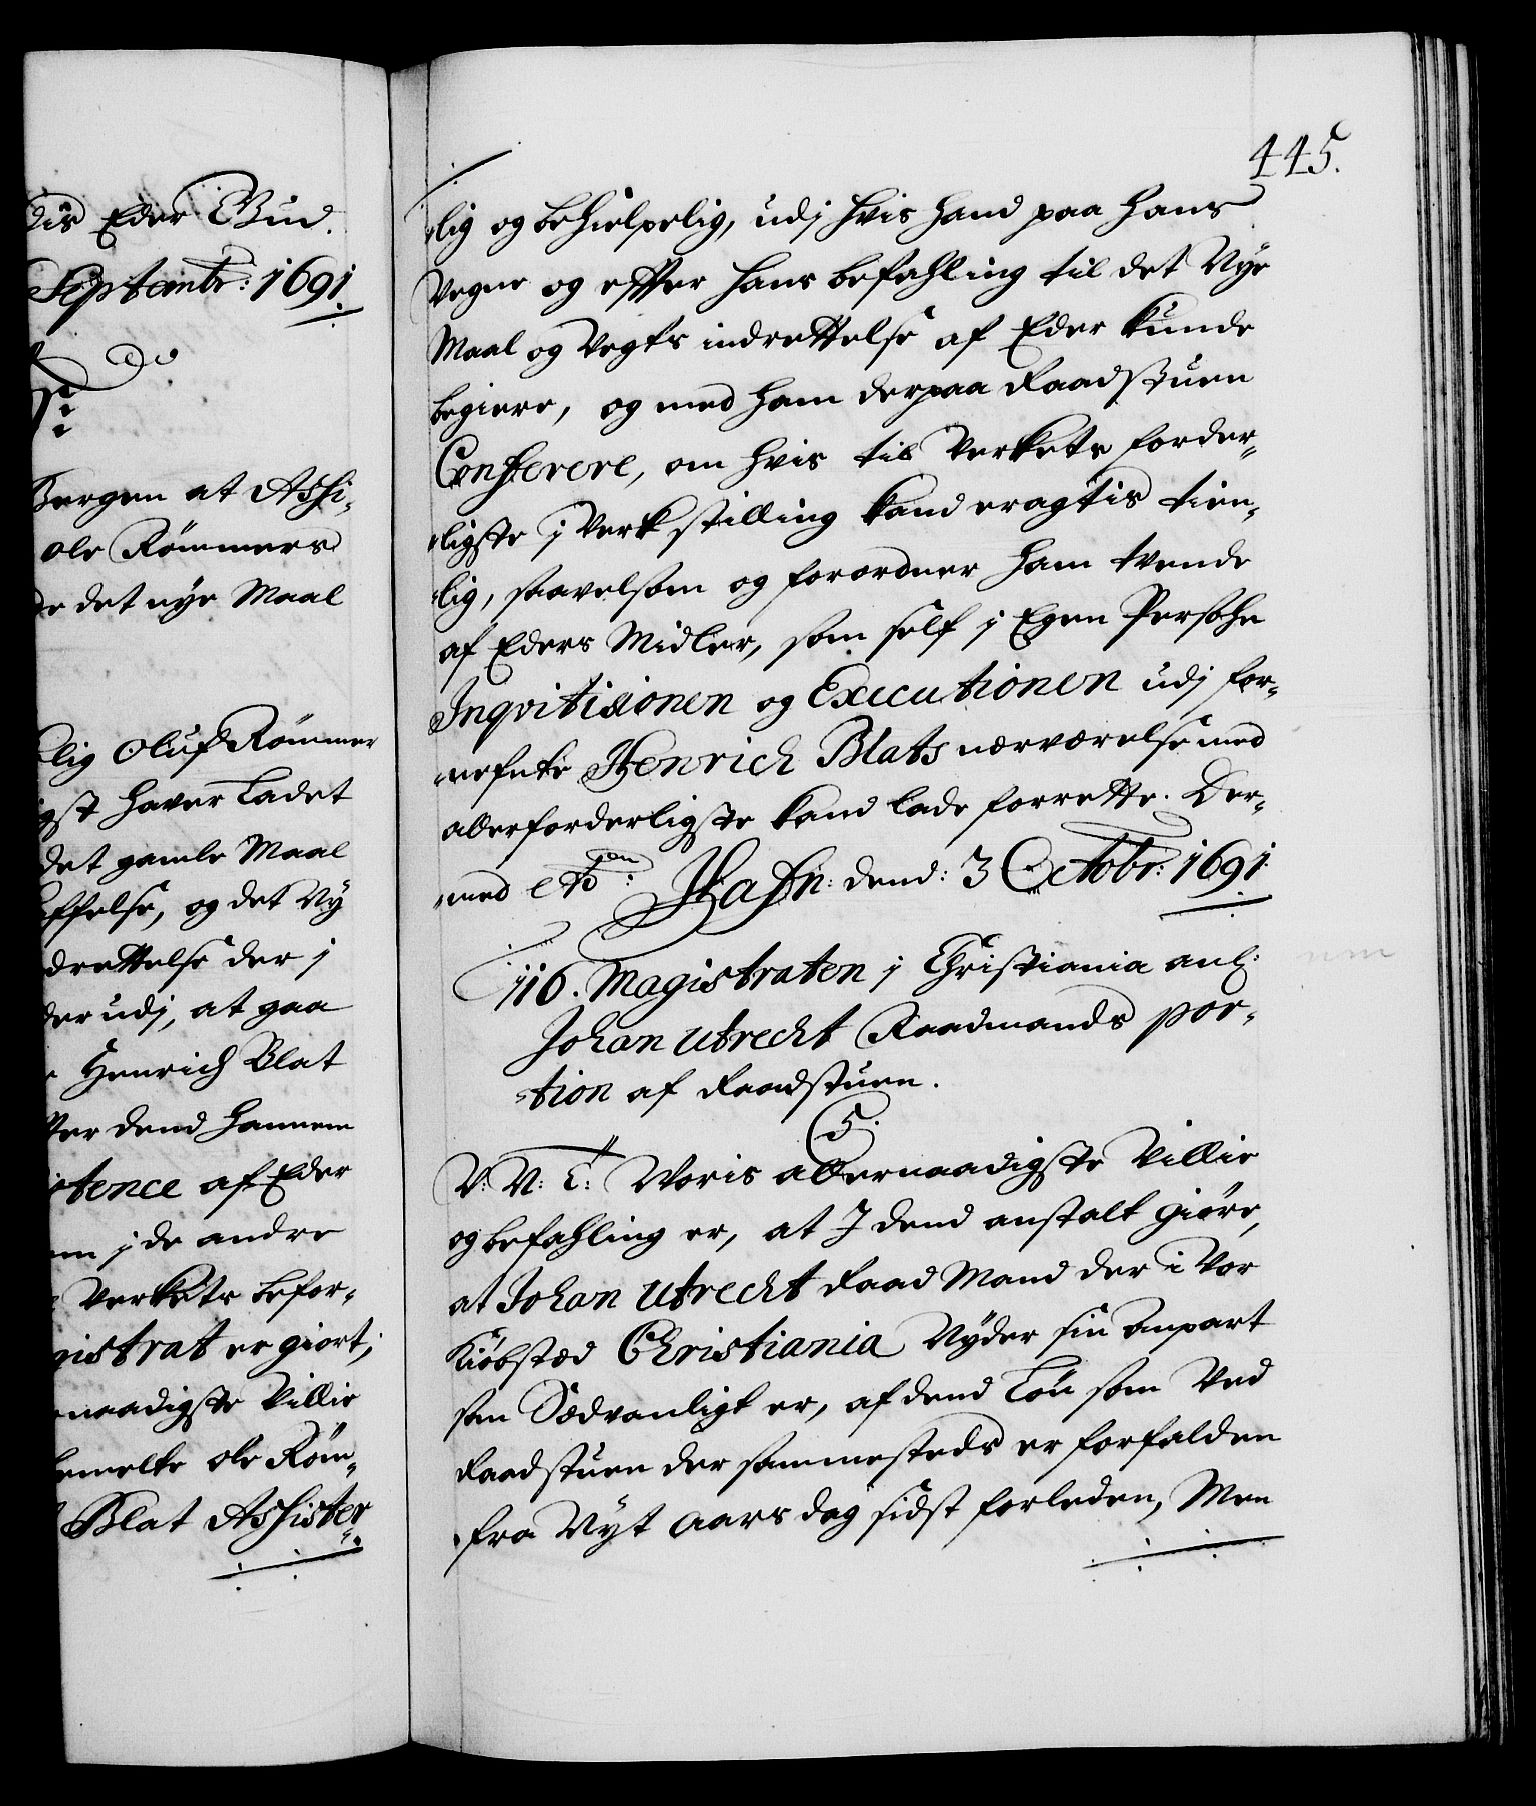 dis Eder Bud.
Septembr: 1691
Bergen at Assi-
ole Rømmers
de det nye Maal
lig Oluf Rømmer
igst haver ladet
det gamle Maal
affelse, og det Ny
drettelse der j
der udj, at gaa
Henrich Blat
ter dend hannem
stence af Eder
j de andre
Verkets befor-
gistrat er giort,
naadigste Villie
bemelte ole Røm-
Blat Assister
445.
-lig og behielpelig, udj hvis hand paa hans
Vegne og effter hans befahling til det Nye
Maal og Vegts indrettelse af Eder kunde
begiere, og med ham derpaa Raadstuen
Conferere, om hvis til Verkets forder-
-ligste j Verkstilling kand eragtis tien-
-lig, saavelsom og forordner ham tvende
af Eders Midler, som self j Egen Persohn
Inqvitisionen og Executionen udj for-
-nefnte Henrich Blats nærværelse med
allerforderligste kand lade forrette. Der-
-med etc: Hafn: dend: 3 Octobr: 1691.
116. Magistraten j Christiania anl:
Johan Utrecht Raadmands por-
-tion af Raadstuen.
C 5.
V: N: T: Voris allernaadigste Villie
og befahling er, at I dend anstalt giøre,
at Johan Utrecht Raad Mand der i Vor
Kiøbsted Christiania Nyder sin anpart
som Sædvanligt er, af dend Løn som Ved
Raadstuen der sammesteds er forfalden
fra Nyt Aars dag sidst forleden, Men